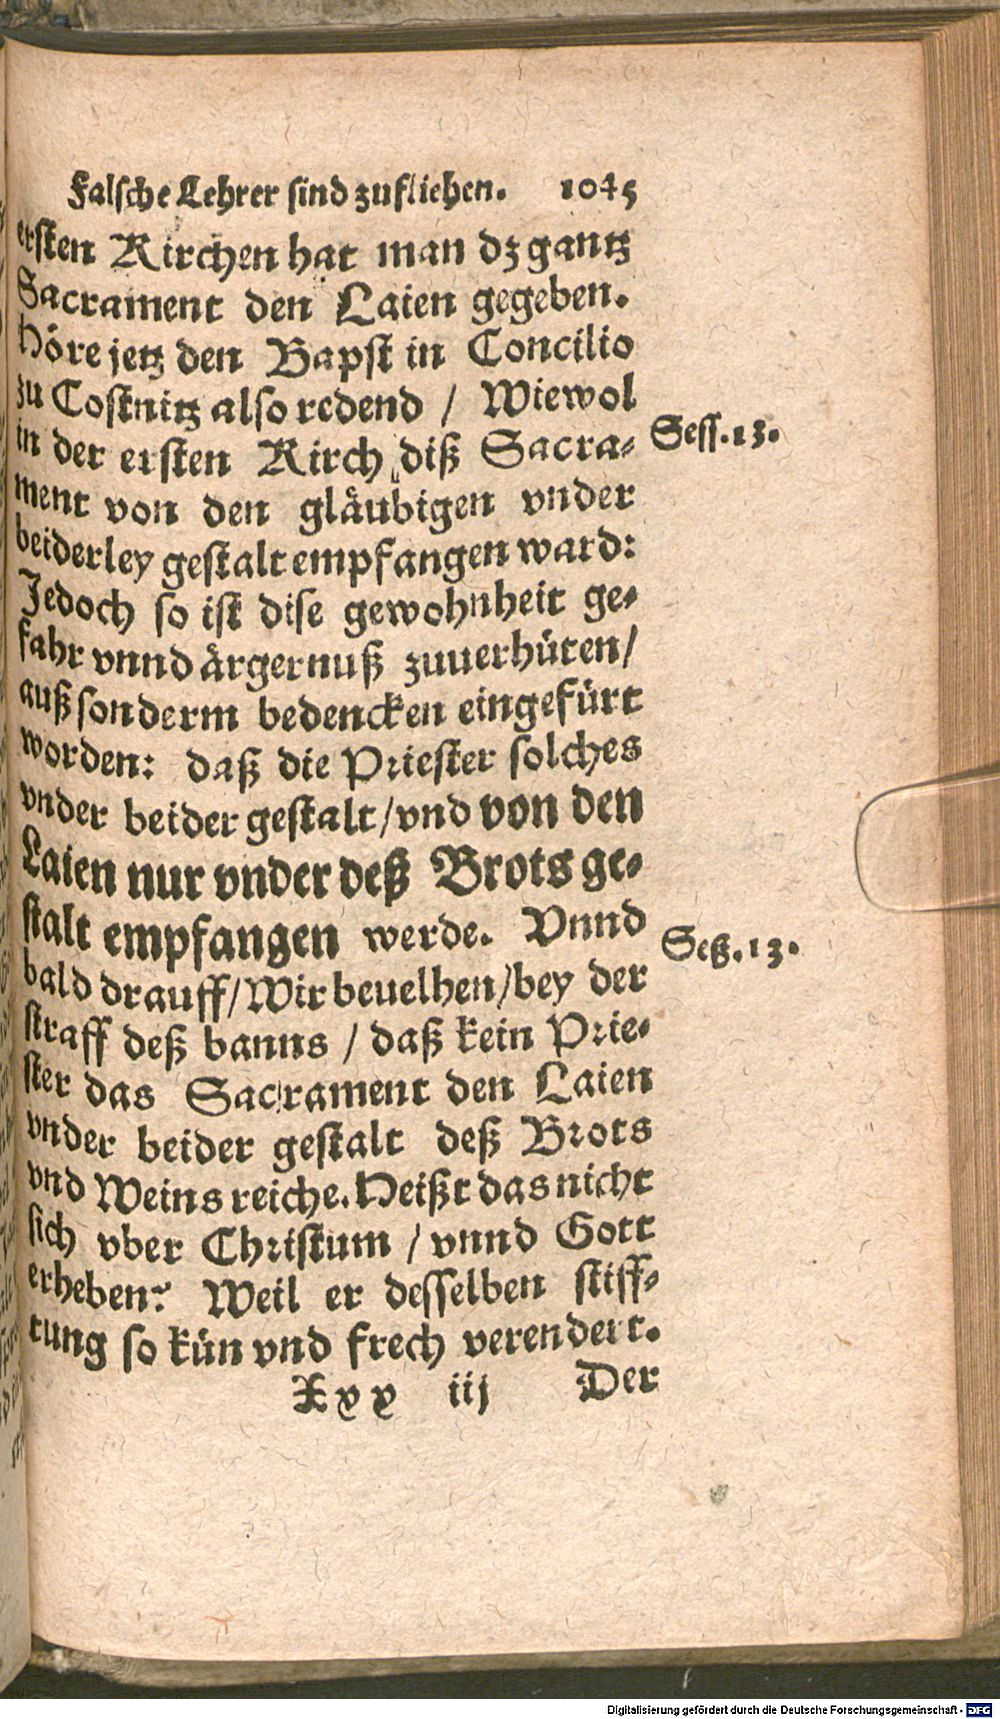 Falsche Lehrer sind zufliehen. 1045
ersten Kirchen hat man dz gantz
Sacrament den Laien gegeben.
Höre jetz den Bapst in Concilio
zu Costnitz also redend / Wiewol
in der ersten Kirch diß Sacra-
Sess. 13.
ment von den gläubigen vnder
beiderley gestalt empfangen ward:
Jedoch so ist dise gewohnheit ge-
fahr vnnd ärgernuß zuuerhüten/
auß sonderm bedencken eingefürt
worden: daß die Priester solches
vnder beider gestalt/vnd von den
Laien nur vnder deß Brots ge-
stalt empfangen werde. Vnnd
Seß. 13.
bald drauff/Wir beuelhen/bey der
straff deß banns / daß kein Prie-
ster das Sacrament den Laien
vnder beider gestalt deß Brots
vnd Weins reiche. Heißt das nicht
sich vber Christum / vnnd Gott
erheben? Weil er desselben stiff-
tung so kün vnd frech verendert.
Xxx iij Der
Digitalisierung gefördert durch die Deutsche Forschungsgemeinschaft - DFG